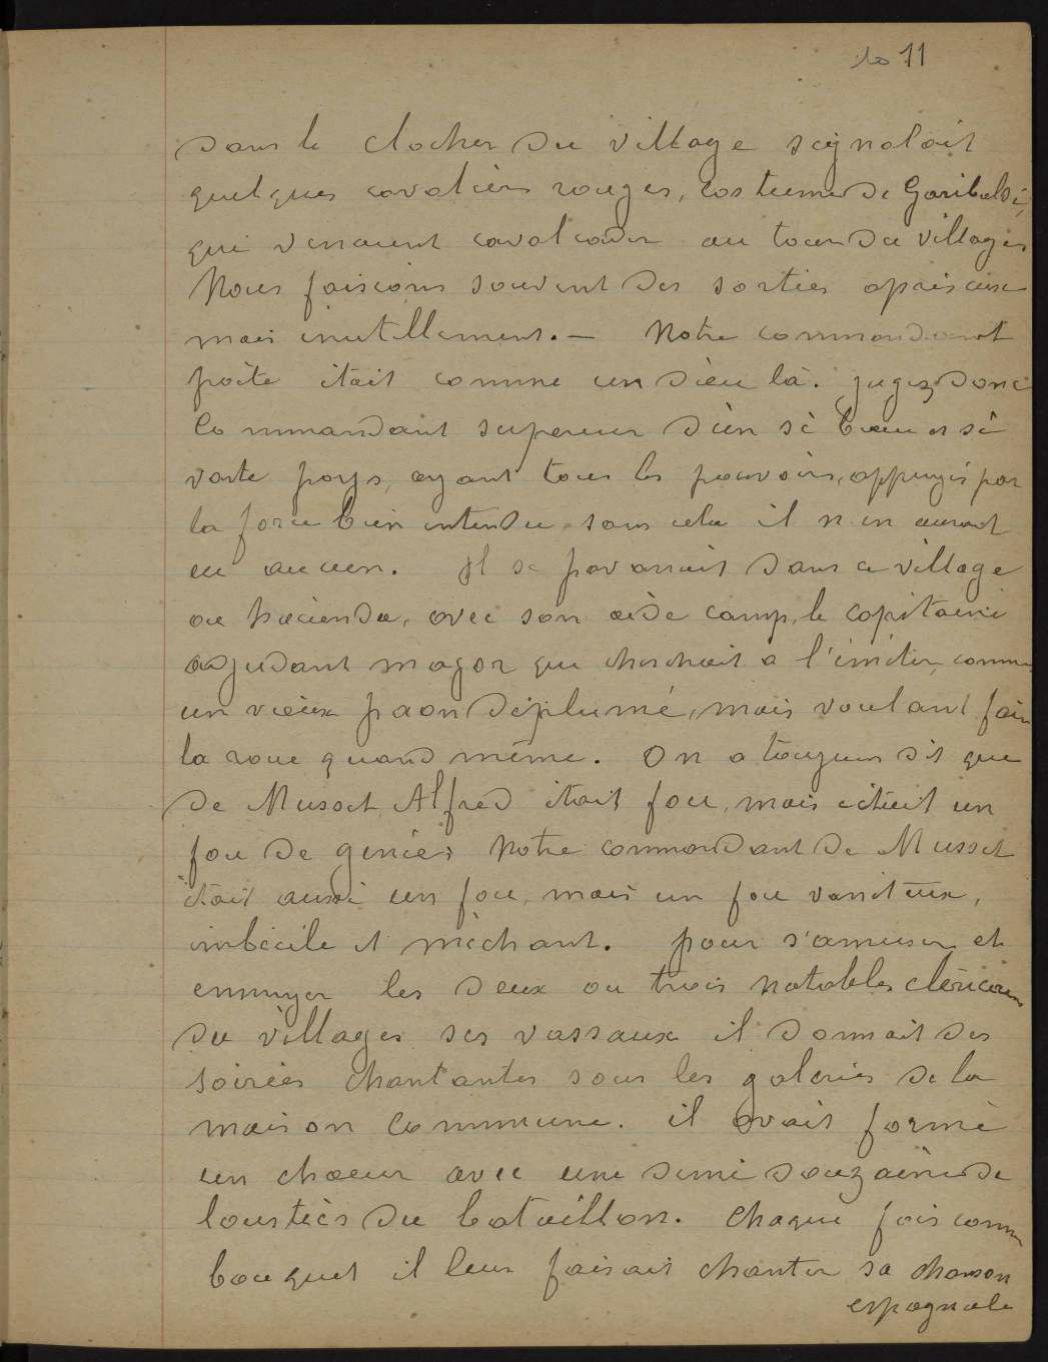 10 11
dans le clocher du village signalait
quelques cavaliers rouges, costume de Garibaldi,
qui venaient cavalcader au tour du village
Nous faisions souvent des sorties après eux
mais inutillement. — Notre commandant
poëte était comme un dieu là. jugez donc
Commandant superieur d'un si beau et si
vaste pays, ayant tous les pouvoirs, appuyés par
la force bien entendu sans cela il n'en aurait
eu aucun. Il se pavannait dans ce village
ou hacienda, avec son aide camp, le capitaine
adjudant magor qui cherchait a l'imiter, comme
un vieux paon déplumé, mais voulant faire
la roue quand même. On a toujours dit que
de Musset Alfred était fou, mais c'était un
fou de genie; Notre commandant de Musset
était aussi un fou, mais un fou vaniteux,
imbécile et méchant. pour s'amuser et
ennuyer les deux ou trois notables cléricaux
du village ses vassaux il donnait des
soirées chantantes sous les galeries de la
maison Commune. il avait formé
un chœur avec une demi douzaine de
loustics du bataillon. Chaque fois comme
bouquet il leur faisait chanter sa chanson
espagnole